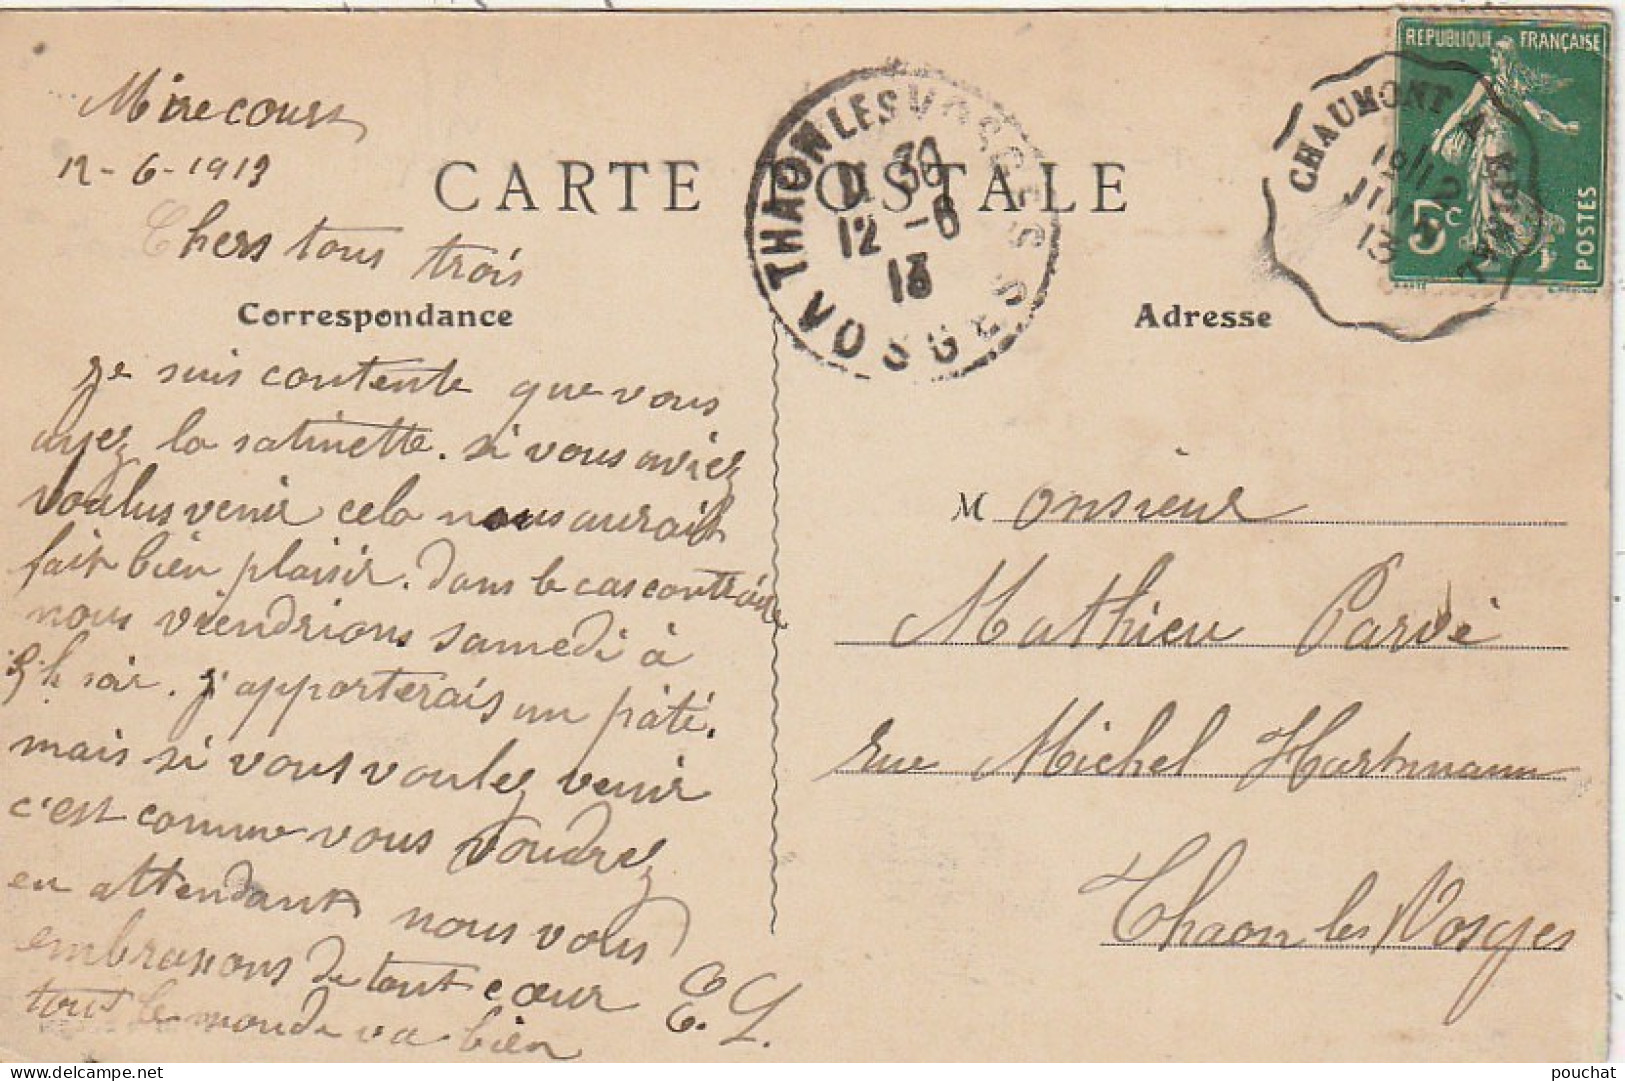 Mirecourt
12-6-1913
CARTE POSTALE
Chers tous trois
Correspondance
je suis contente que vous
ayez la satinette. si vous aviez
voulus venir cela nous aurait
fait bien plaisir. dans le cas contraire
nous viendrions samedi à
h soir. j'apporterais un pâté.
mais si vous voulez venir
c'est comme vous voudrez
en attendant nous vous
embrassons de tout cœur
tout le monde va bien
E. L.
THAON LES VOSGES
30
12 -6
13
VOSGES
CHAUMONT A EPINAL
12
JUIN
13
REPUBLIQUE FRANÇAISE
5c
POSTES
Adresse
Monsieur
Mathieu Parvé
rue Michel Hartmann
Thaon les Vosges
pouchat